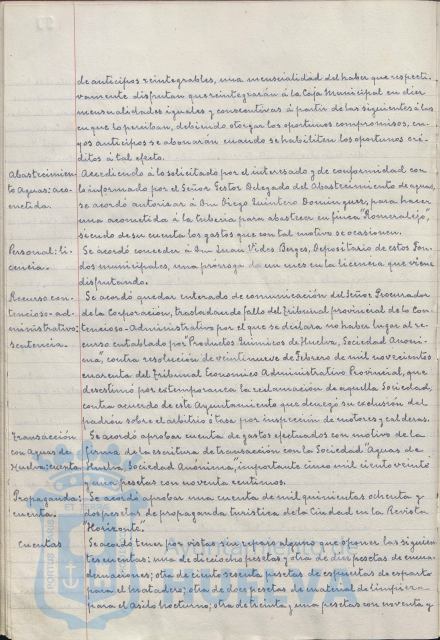 de anticipos reintegrables, una mensualidad del haber que respecti-
vamente disfrutan que reintegrarán á la Caja Municipal en diez
mensualidades iguales y consecutivas á partir de las siguientes á las
en que lo perciban, debiendo otorgar los oportunos compromisos, cu-
yos anticipos se abonarán cuando se habiliten los oportunos cré-
ditos á tal efecto.
Abastecimien-
to Aguas: aco-
metida.
Accediendo á lo solicitado por el interesado y de conformidad con
lo informado por el Señor Gestor Delegado del Abastecimiento de aguas,
se acordó autorizar á Don Diego Quintero Dominguez, para hacer
una acometida á la tubería para abastecer en finca "Romeralejo",
siendo de su cuenta los gastos que con tal motivo se ocasionen.
Personal: li-
cencia.
Se acordó conceder á Don Juan Vides Berges, Depositario de estos Fon-
dos municipales, una prórroga de un mes en la licencia que viene
disfrutando.
Recurso con-
tencioso-ad-
ministrativo:
sentencia.
Se acordó quedar enterado de comunicación del Señor Procurador
de la Corporación, trasladando fallo del Tribunal provincial de lo Con-
tencioso-Administrativo por el que se declara no haber lugar al re-
curso entablado por "Productos Químicos de Huelva, Sociedad Anóni-
ma", contra resolución de veintinueve de Febrero de mil novecientos
cuarenta del Tribunal Economico Administrativo Provincial, que
desestimó por extemporanea la reclamación de aquella Sociedad,
contra acuerdo de este Ayuntamiento que denegó su exclusión del
padrón sobre el arbitrio ó tasa por inspección de motores y calderas.
Transacción
con Aguas de
Huelva: cuenta.
Se acordó aprobar cuenta de gastos efectuados con motivo de la
firma de la escritura de transacción con la Sociedad "Aguas de
Huelva, Sociedad Anónima, importante cinco mil ciento veinti
y una pesetas con noventa centimos.
Propaganda:
cuenta.
Se acordó aprobar una cuenta de mil quinientas ochenta y
dos pesetas de propaganda turistica de la Ciudad en la Revista
"Horizonte".
Cuentas
Se acordó tener por vistas sin reparo alguno que oponer las siguien-
tes cuentas: una de dieciocho pesetas y otra de diez pesetas de encua-
dernaciones; otra de ciento sesenta pesetas de espuertas de esparto
para el Matadero; otra de doce pesetas de material de limpieza
para el asilo nocturno; otra de treinta y una pesetas con noventa y